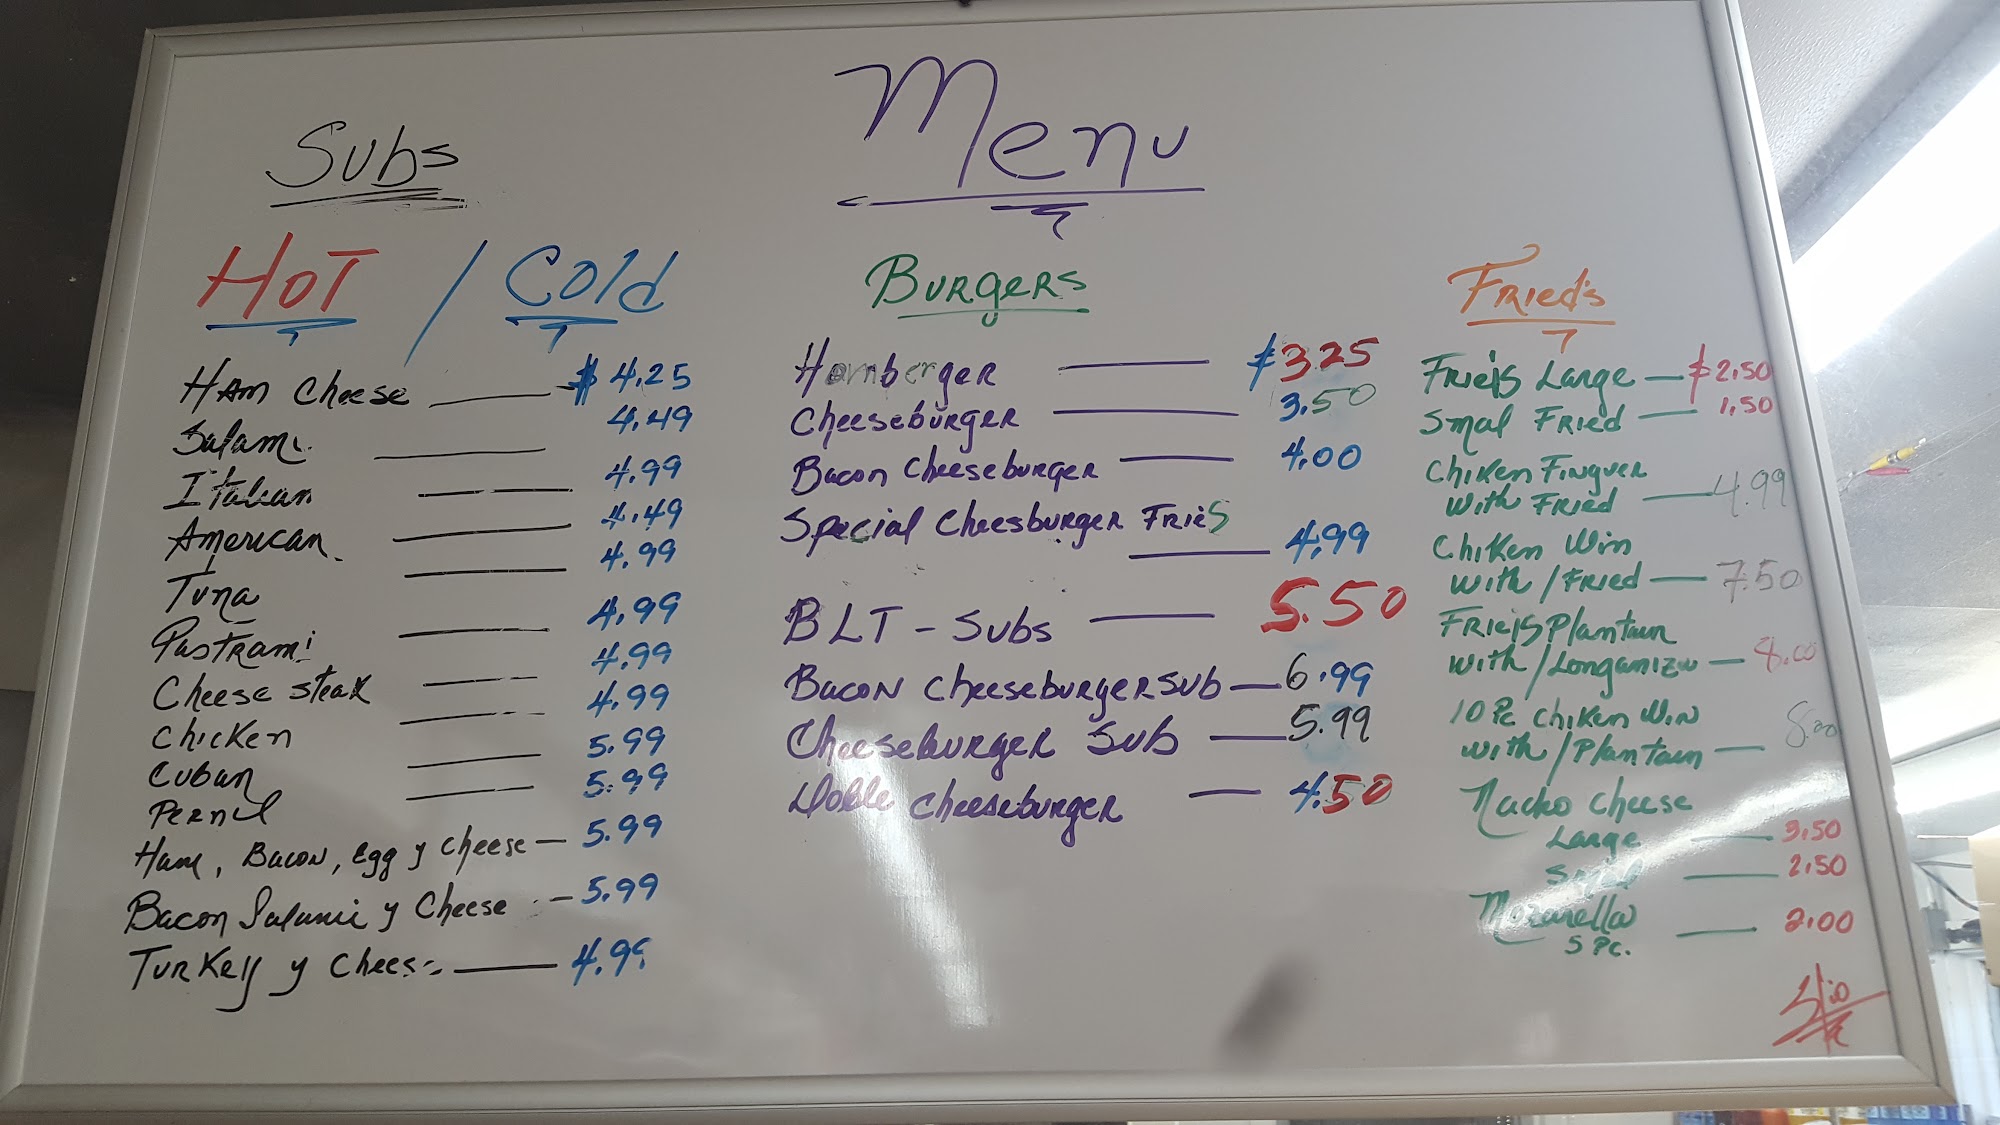 Menu
Subs
HOT / Cold
HAM Cheese $ 4.25
Salami 4.49
Italian 4.99
American 4.49
Tuna 4.99
Pastrami 4.99
Cheese steak 4.99
Chicken 4.99
Cuban 5.99
Pernil 5.99
Ham, Bacon, Egg y cheese 5.99
Bacon Salami y Cheese 5.99
Turkey y Cheese 4.99
Burgers
Hamberger $3.25
Cheeseburger 3.50
Bacon Cheeseburger 4.00
Special Cheesburger Fries
4.99
BLT - Subs 5.50
Bacon Cheeseburger sub 6.99
Cheeseburger Sub 5.99
Doble Cheeseburger 4.50
Fried's
Large $2.50
Smal Fried 1.50
Chiken Finguer
with Fried 4.99
Chiken Win
with/Fried 7.50
Plantain
with/Longaniza 8.00
10 Pc Chiken Win
with/Plantain 8.00
Nacho Cheese
Large 3.50
Smal 2.50
Mozarella 2.00
5 Pc.